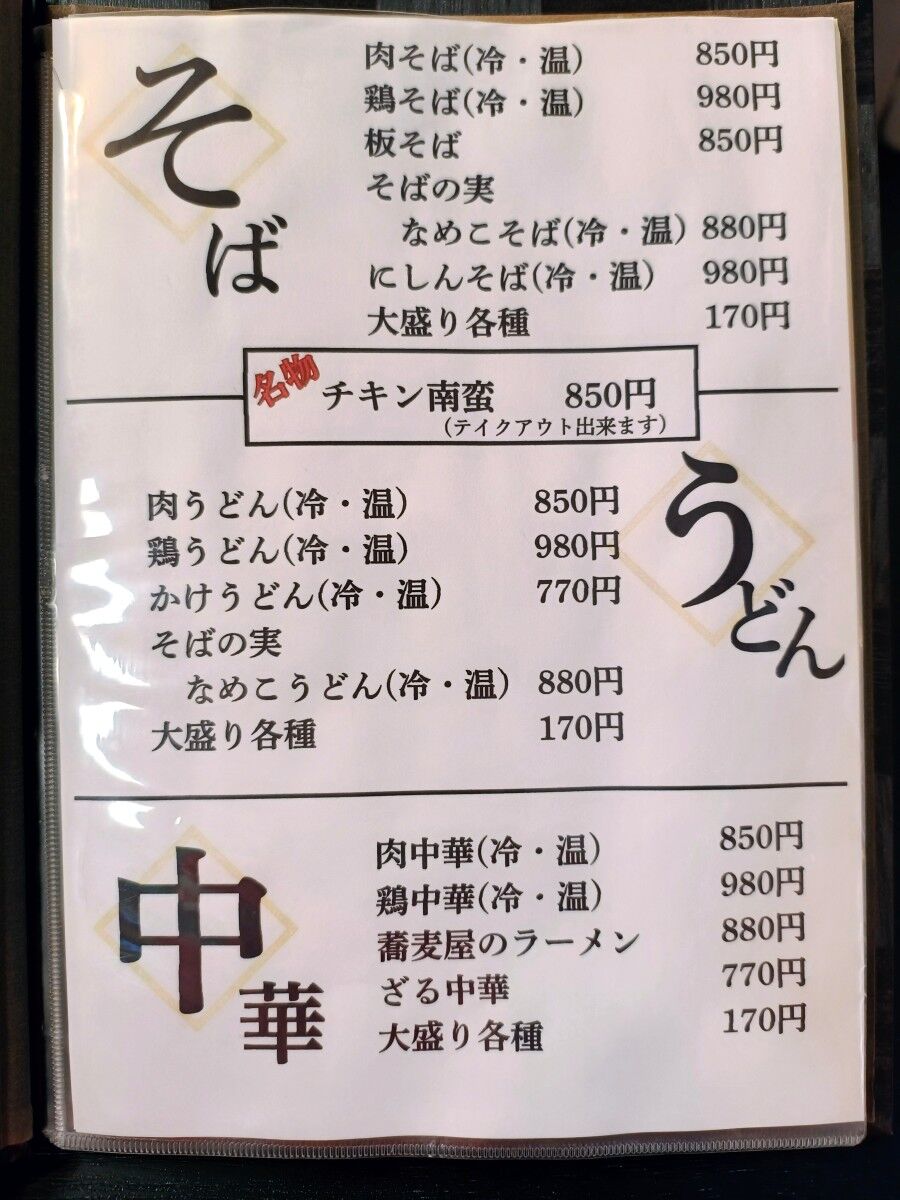 そば
肉そば(冷・温) 850円
鶏そば(冷・温) 980円
板そば 850円
そばの実
なめこそば(冷・温) 880円
にしんそば(冷・温) 980円
大盛り各種 170円
名物 チキン南蛮 850円
(テイクアウト出来ます)
うどん
肉うどん(冷・温) 850円
鶏うどん(冷・温) 980円
かけうどん(冷・温) 770円
そばの実
なめこうどん(冷・温) 880円
大盛り各種 170円
中華
肉中華(冷・温) 850円
鶏中華(冷・温) 980円
蕎麦屋のラーメン 880円
ざる中華 770円
大盛り各種 170円